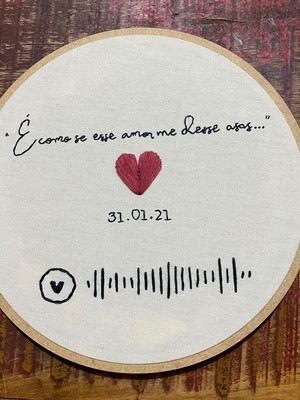 "É como se esse amor me desse asas..."
31.01.21